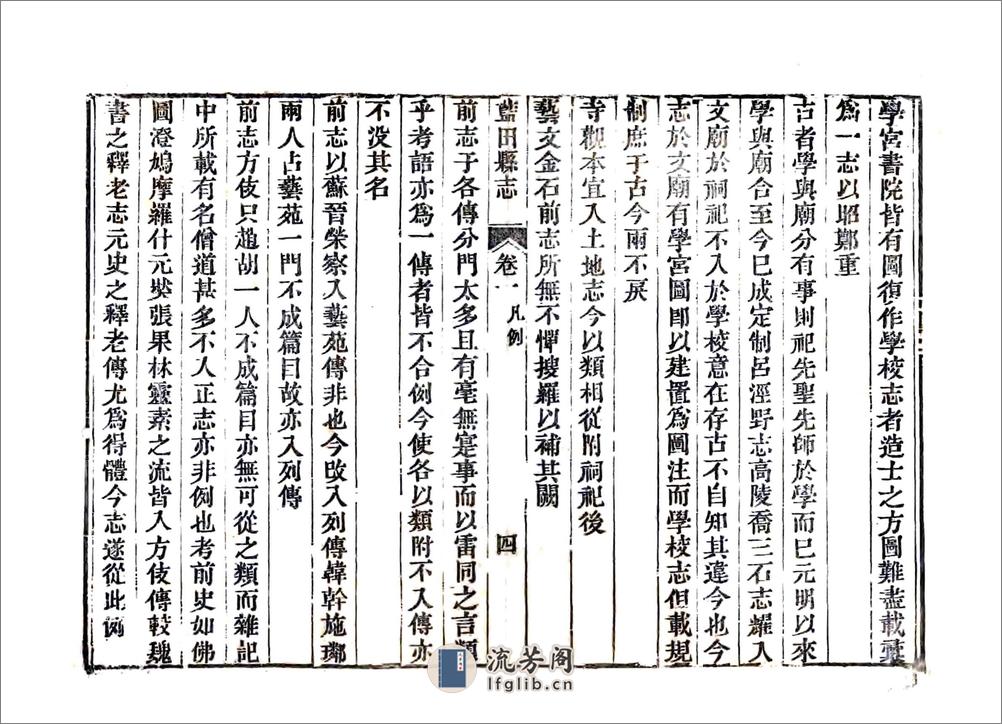 學宮書院皆有圖復作學校志者造士之方圖難盡載彙
爲一志以昭鄭重
古者學與廟分有事則祀先聖先師於學而巳元明以來
學與廟合至今巳成定制呂涇野志高陵喬三石志耀入
文廟於祠祀不入於學校意在存古不自知其違今也今
志於文廟有學宮圖卽以建置爲圖注而學校志但載規
制庶于古今兩不戾
寺觀本宜入土地志今以類相從附祠祀後
藝文金石前志所無不憚搜羅以補其闕
藍田縣志 卷一 凡例 四
前志于各傳分門太多且有毫無寔事而以雷同之言類
乎考語亦爲一傳者皆不合例今使各以類附不入傳亦
不没其名
前志以蘇晉榮察入藝苑傳非也今攺入列傳韓幹施璘
兩人占藝苑一門不成篇目故亦入列傳
前志方伎只趙胡一人不成篇目亦無可從之類而雜記
中所載有名僧道甚多不入正志亦非例也考前史如佛
圖澄鳩摩羅什元奘張果林靈素之流皆入方伎傳較魏
書之釋老志元史之釋老傳尤爲得體今志遂從此例
流芳阁
lfglib.cn